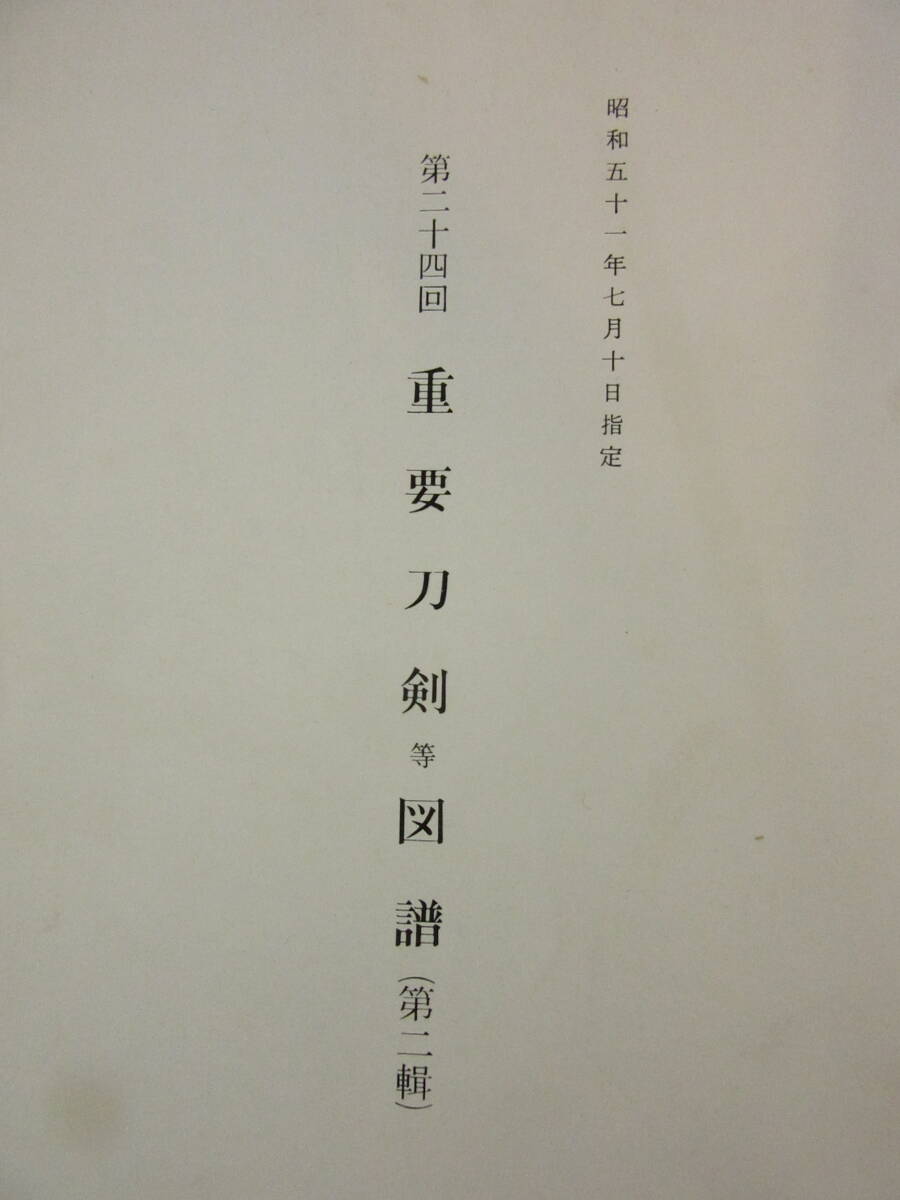 昭和五十一年七月十日指定
第二十四回 重要刀剣等図譜(第二輯)